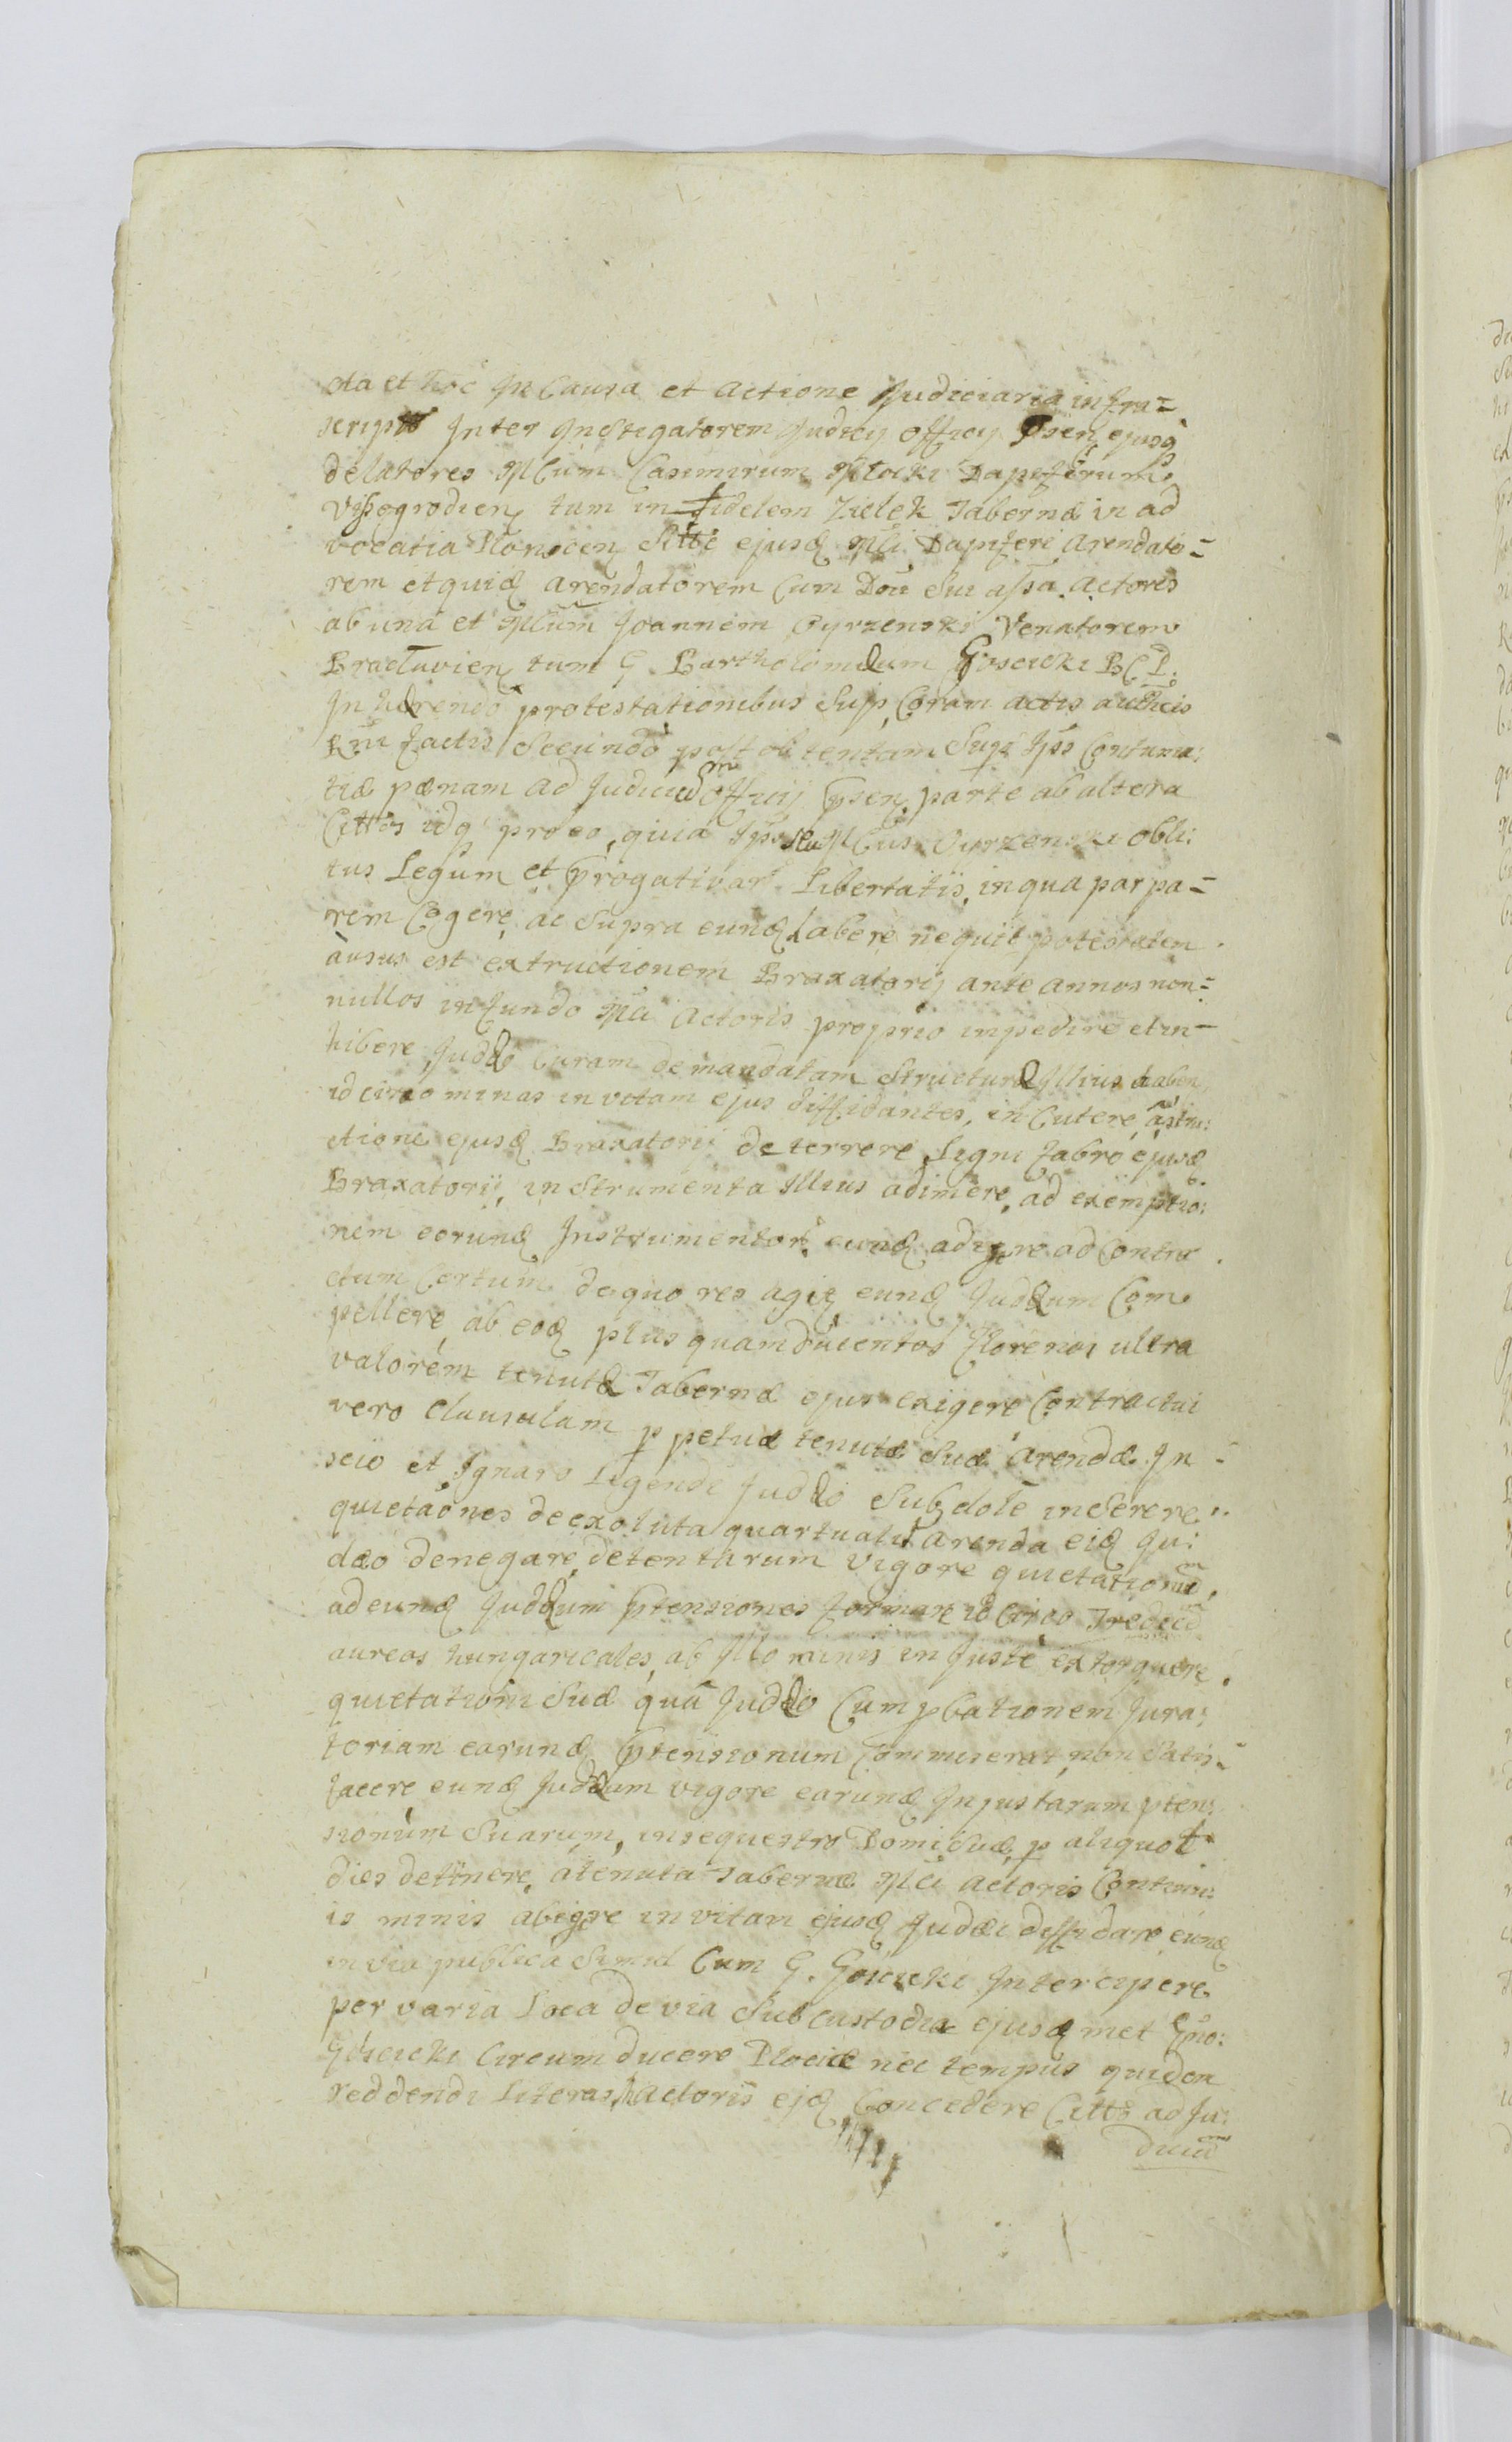 cta et hoc In Causa et Actione Judiciaria infra=
scripta Inter Instigatorem Judicy Officy Psen ejusq
delatores Mcum Casimirum Młocki Dapiferum
Vissegrodien tum infidelem Zielek Tabernæ in ad
vocatia Płonscen Sittæ ejusd Mci Dapiferi Arendato=
rem et quid arendatorem Cum Dni Sui assa Actores
ab una et Mcum Joannem Cyrzenski Venatorem
Braclavien tum G. Bartholomæum Goscicki
Inhærendo protestationibus Sup Coram actis authcis
factis Secundo post obtentam Sup Ipso Contuma:
tiæ pænam ad Judicium Officij Psen parte ab altera
Cittos idq pro eo, quia Ipse Mcus Cyrzenski obli:
tus Legum et Progativar Libertatis, in qua par pa=
rem Cogere, ac Supra eund habere nequit potestatem
ausus est extructionem Braxatorij ante annos non=
nullos in fundo Mci Actoris proprio impedire et in=
hibere Judæo Curam demandatam Structuræ Illius haben
idcirco minas in vitam ejus diffidantes, incutere, a stru:
ctione ejusd Braxatorij deterrere Ligni fabro ejusd
Braxatorij, instrumenta Illius adimere, ad exemptio:
nem eorund Instrumentor eund adigere ad Contra
ctum Certum de quo res agit eund Judæum Com
pellere, ab eod plus quam ducentos florenos ultra
valorem tenutæ Tabernæ ejus exigere Contractui
vero Clausulam p petuæ tenutæ Suæ Arendæ In=
scio et Ignaro Legende Judæo Subdole inserere
quietaones de exoluta quartuali Arenda eid Ju:
dæo denegare, detentarum vigore quietationum,
ad eund Judæum Ptensiones formare idcirco Tredecim
aureos hungaricales, ab Illo minis injuste extorquere,
quietationi Suæ qua Judæo Cum pbationem Jura:
toriam earund Ptensionum Commiserat, non Satis=
facere eund Judæum vigore earund Injustarum pten:
sionum Suarum, in sequestro Domi Suæ, p aliquot
dies detinere, a tenuta Tabernæ Mci Actoris Continu:
is minis abigere in vitam ejusd Judæi diffidare, eund
in via publica Simul Cum G. Goscicki Intercipere
per varia Loca devia Sub custodia ejusd met Gnio:
Goscicki Circumducere Plociæ nec tempus quidem
reddendi Literas Actoris eid Concedere Citto ad Ju:
dicium